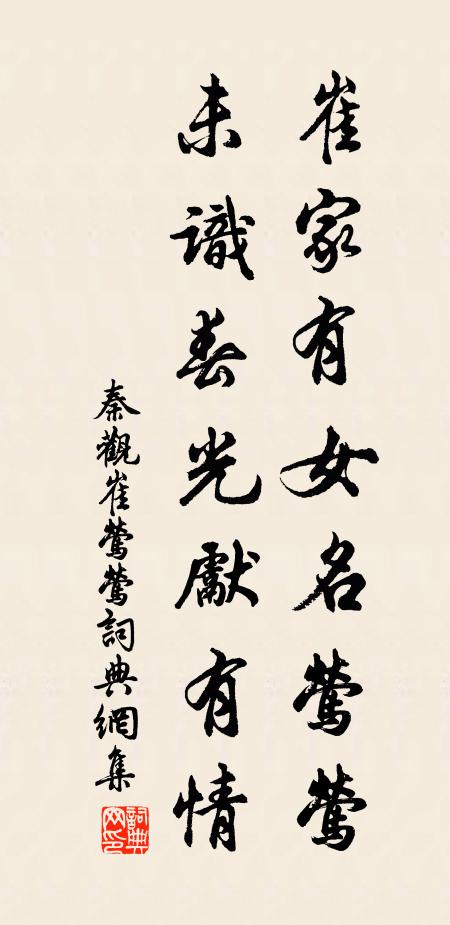 崔家有女名鶯鶯
未識春光獻有情
秦觀崔鶯鶯詞典網集
詞典网印